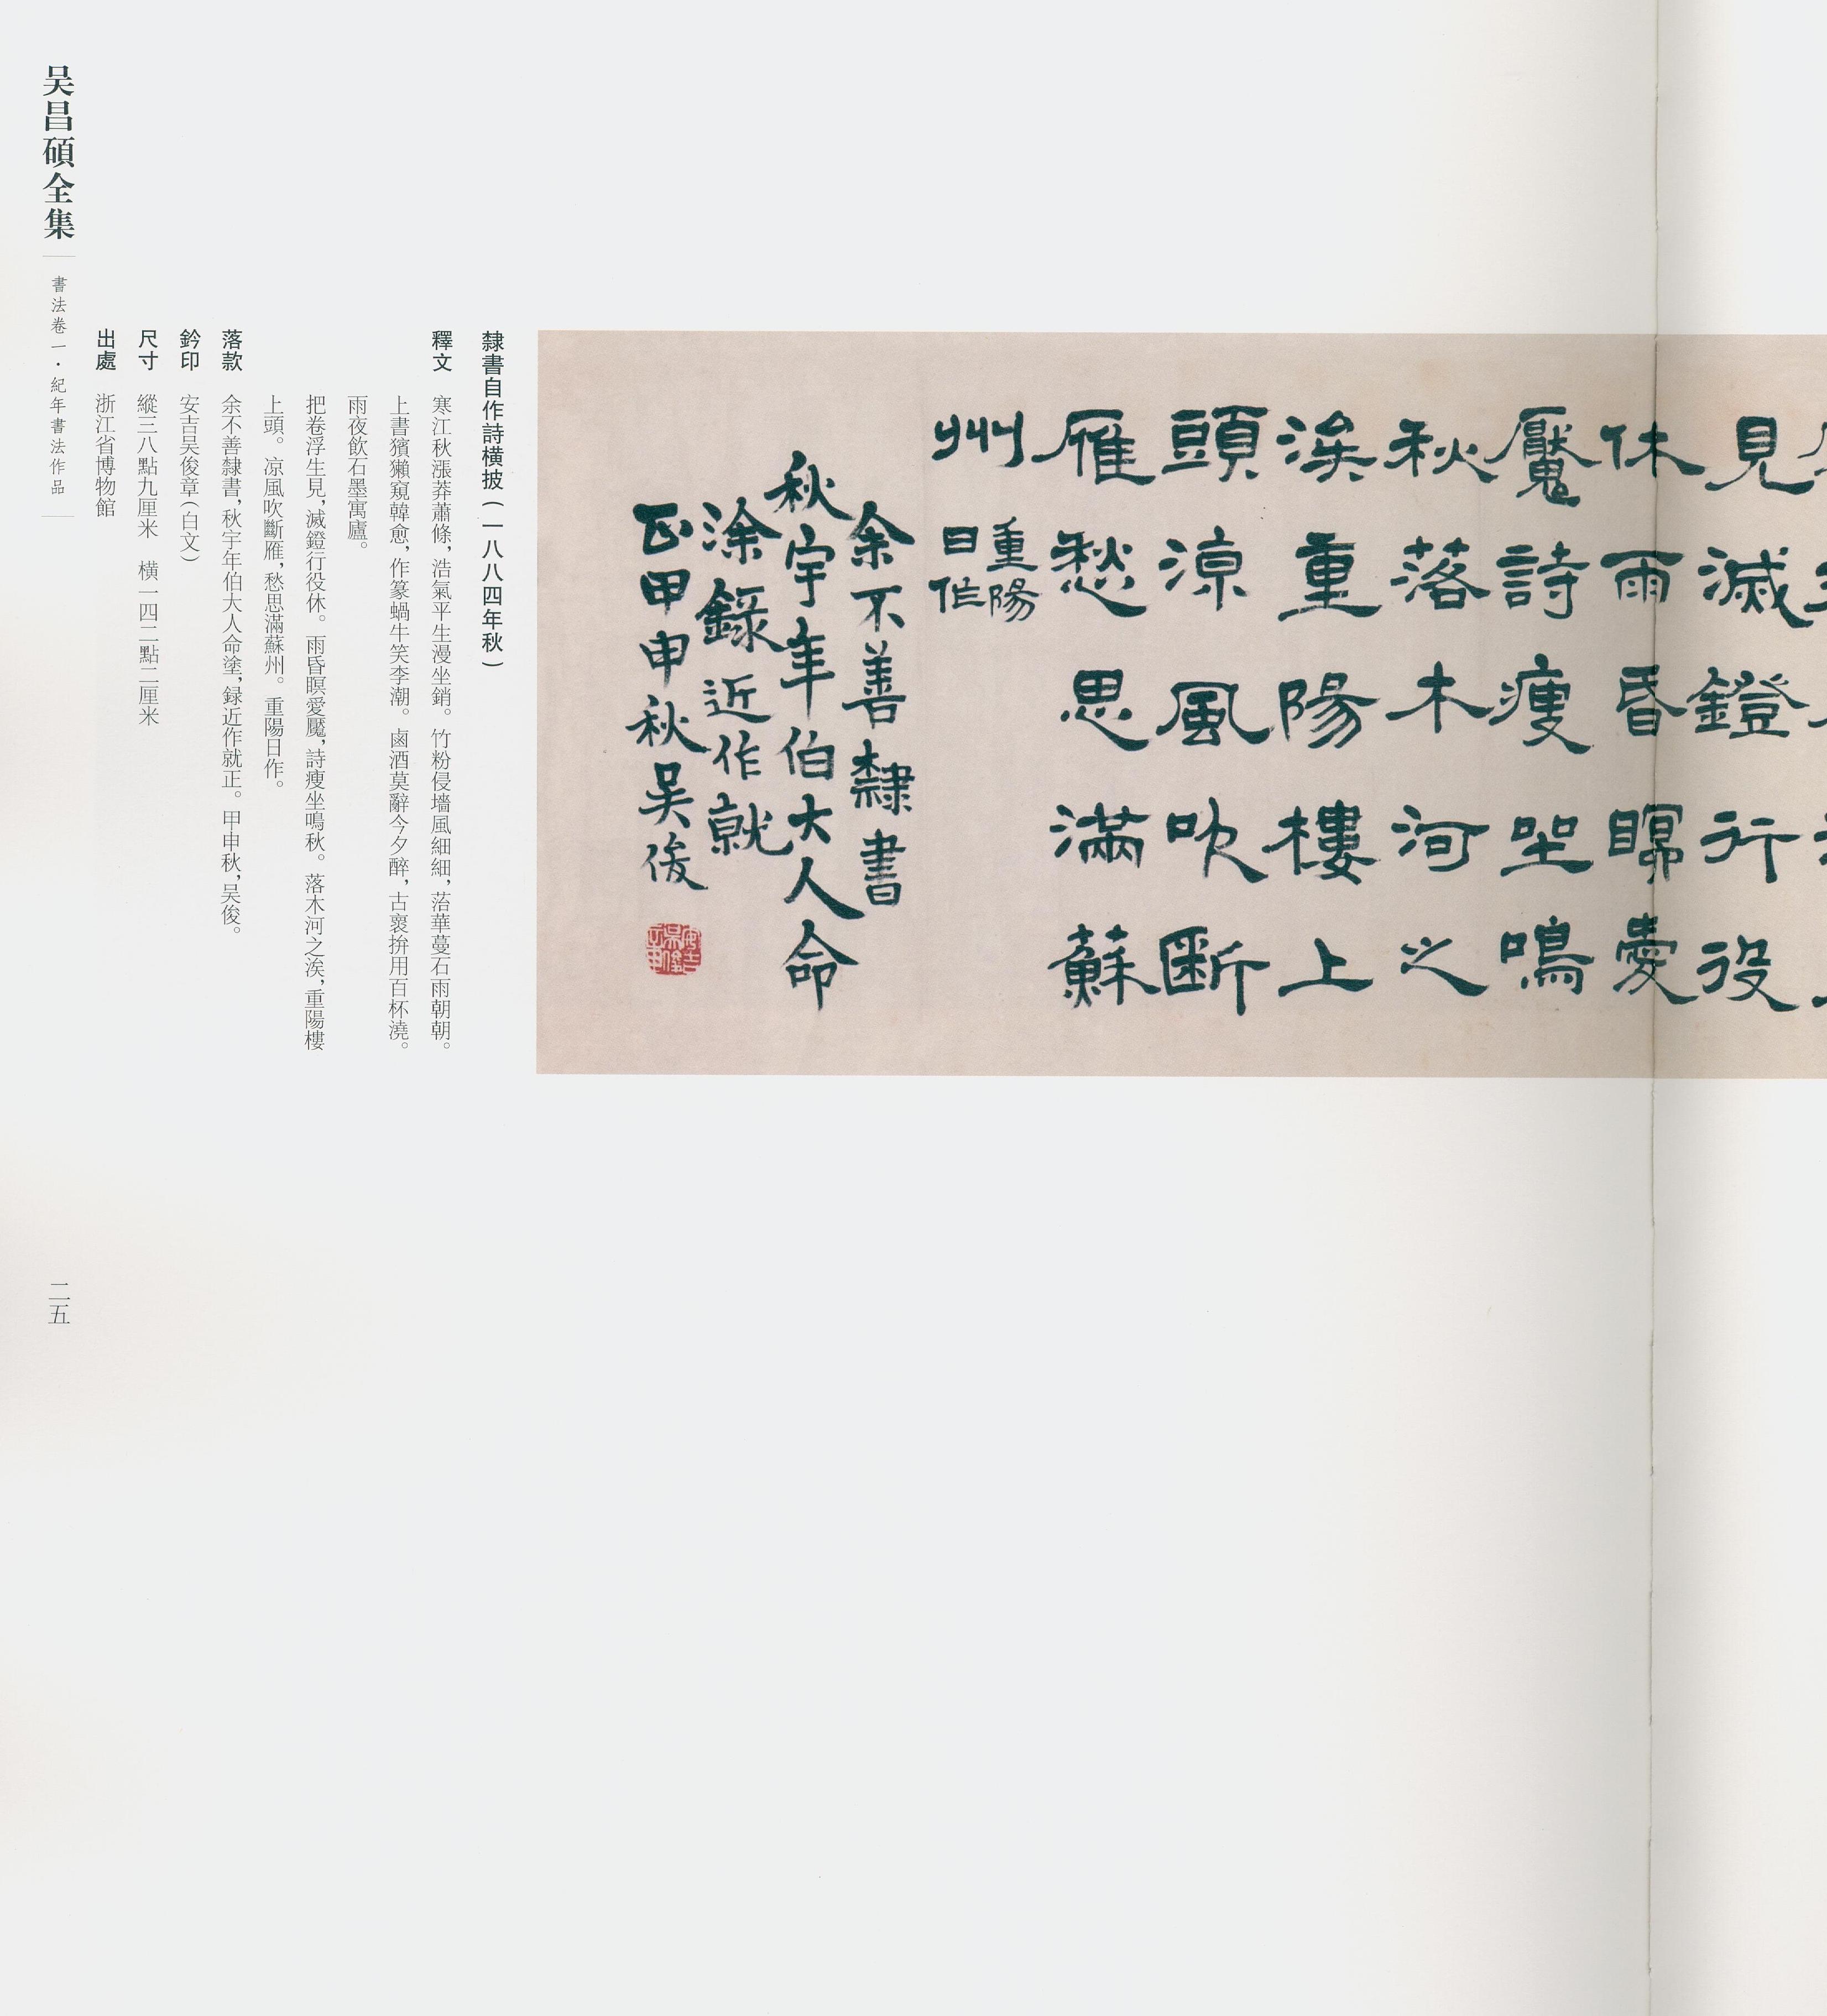 見滅鐙行役
休雨昏瞑愛
魘詩瘦坐鳴
秋落木河之
涘重陽樓上
頭涼風吹斷
雁愁思滿蘇
州
重陽
日作
余不善隸書
秋宇年伯大人命
涂錄近作就
正甲申秋吴俊
隸書自作詩橫披(一八八四年秋)
釋文 寒江秋漲莽蕭條,浩氣平生漫坐銷。竹粉侵墻風細細,萿華蔓石雨朝朝。
上書獱獺窺韓愈,作篆蝸牛笑李潮。鹵酒莫辭今夕醉,古裵拚用百杯澆。
雨夜飲石墨寓廬。
把卷浮生見,滅鐙行役休。雨昏瞑愛魘,詩瘦坐鳴秋。落木河之涘,重陽樓
上頭。凉風吹斷雁,愁思滿蘇州。重陽日作。
落款 余不善隸書,秋宇年伯大人命塗,録近作就正。甲申秋,吴俊。
鈐印 安吉吴俊章(白文)
尺寸 縱三八點九厘米 橫一四二點二厘米
出處 浙江省博物館
吴昌碩全集
書法卷一·紀年書法作品
二五